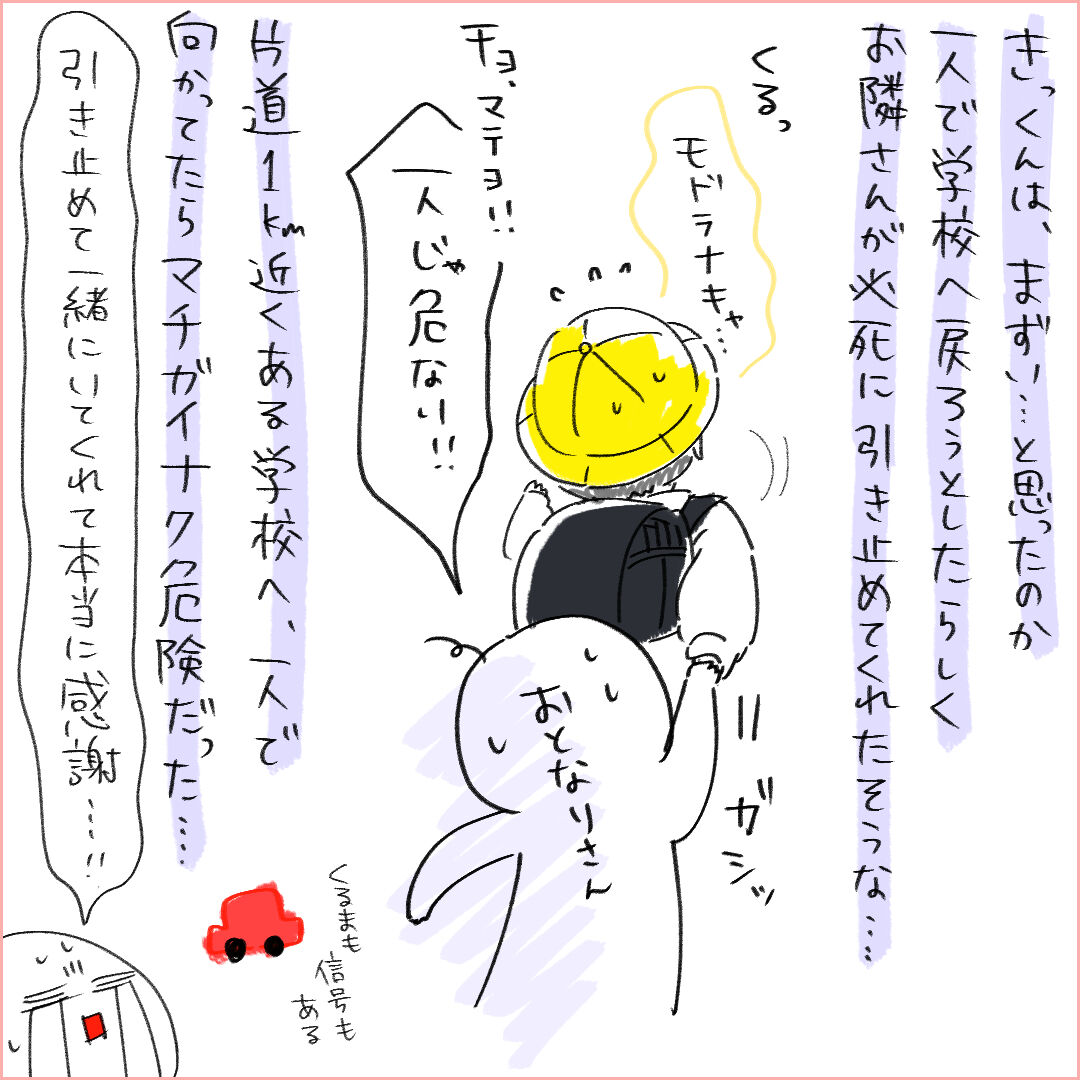 きっくんは、まずい…と思ったのか
一人で学校へ戻ろうとしたらしく
お隣さんが必死に引き止めてくれたそうな…
くるっ
モドラナキャ…
チョ、マテョ!!
一人じゃ危ない!!
ガシッ
おとなりさん
片道1km近くある学校へ、一人で
向かってたらマチガイナク危険だった…
くるまも
信号も
ある
引き止めて一緒にいてくれて本当に感謝…!!